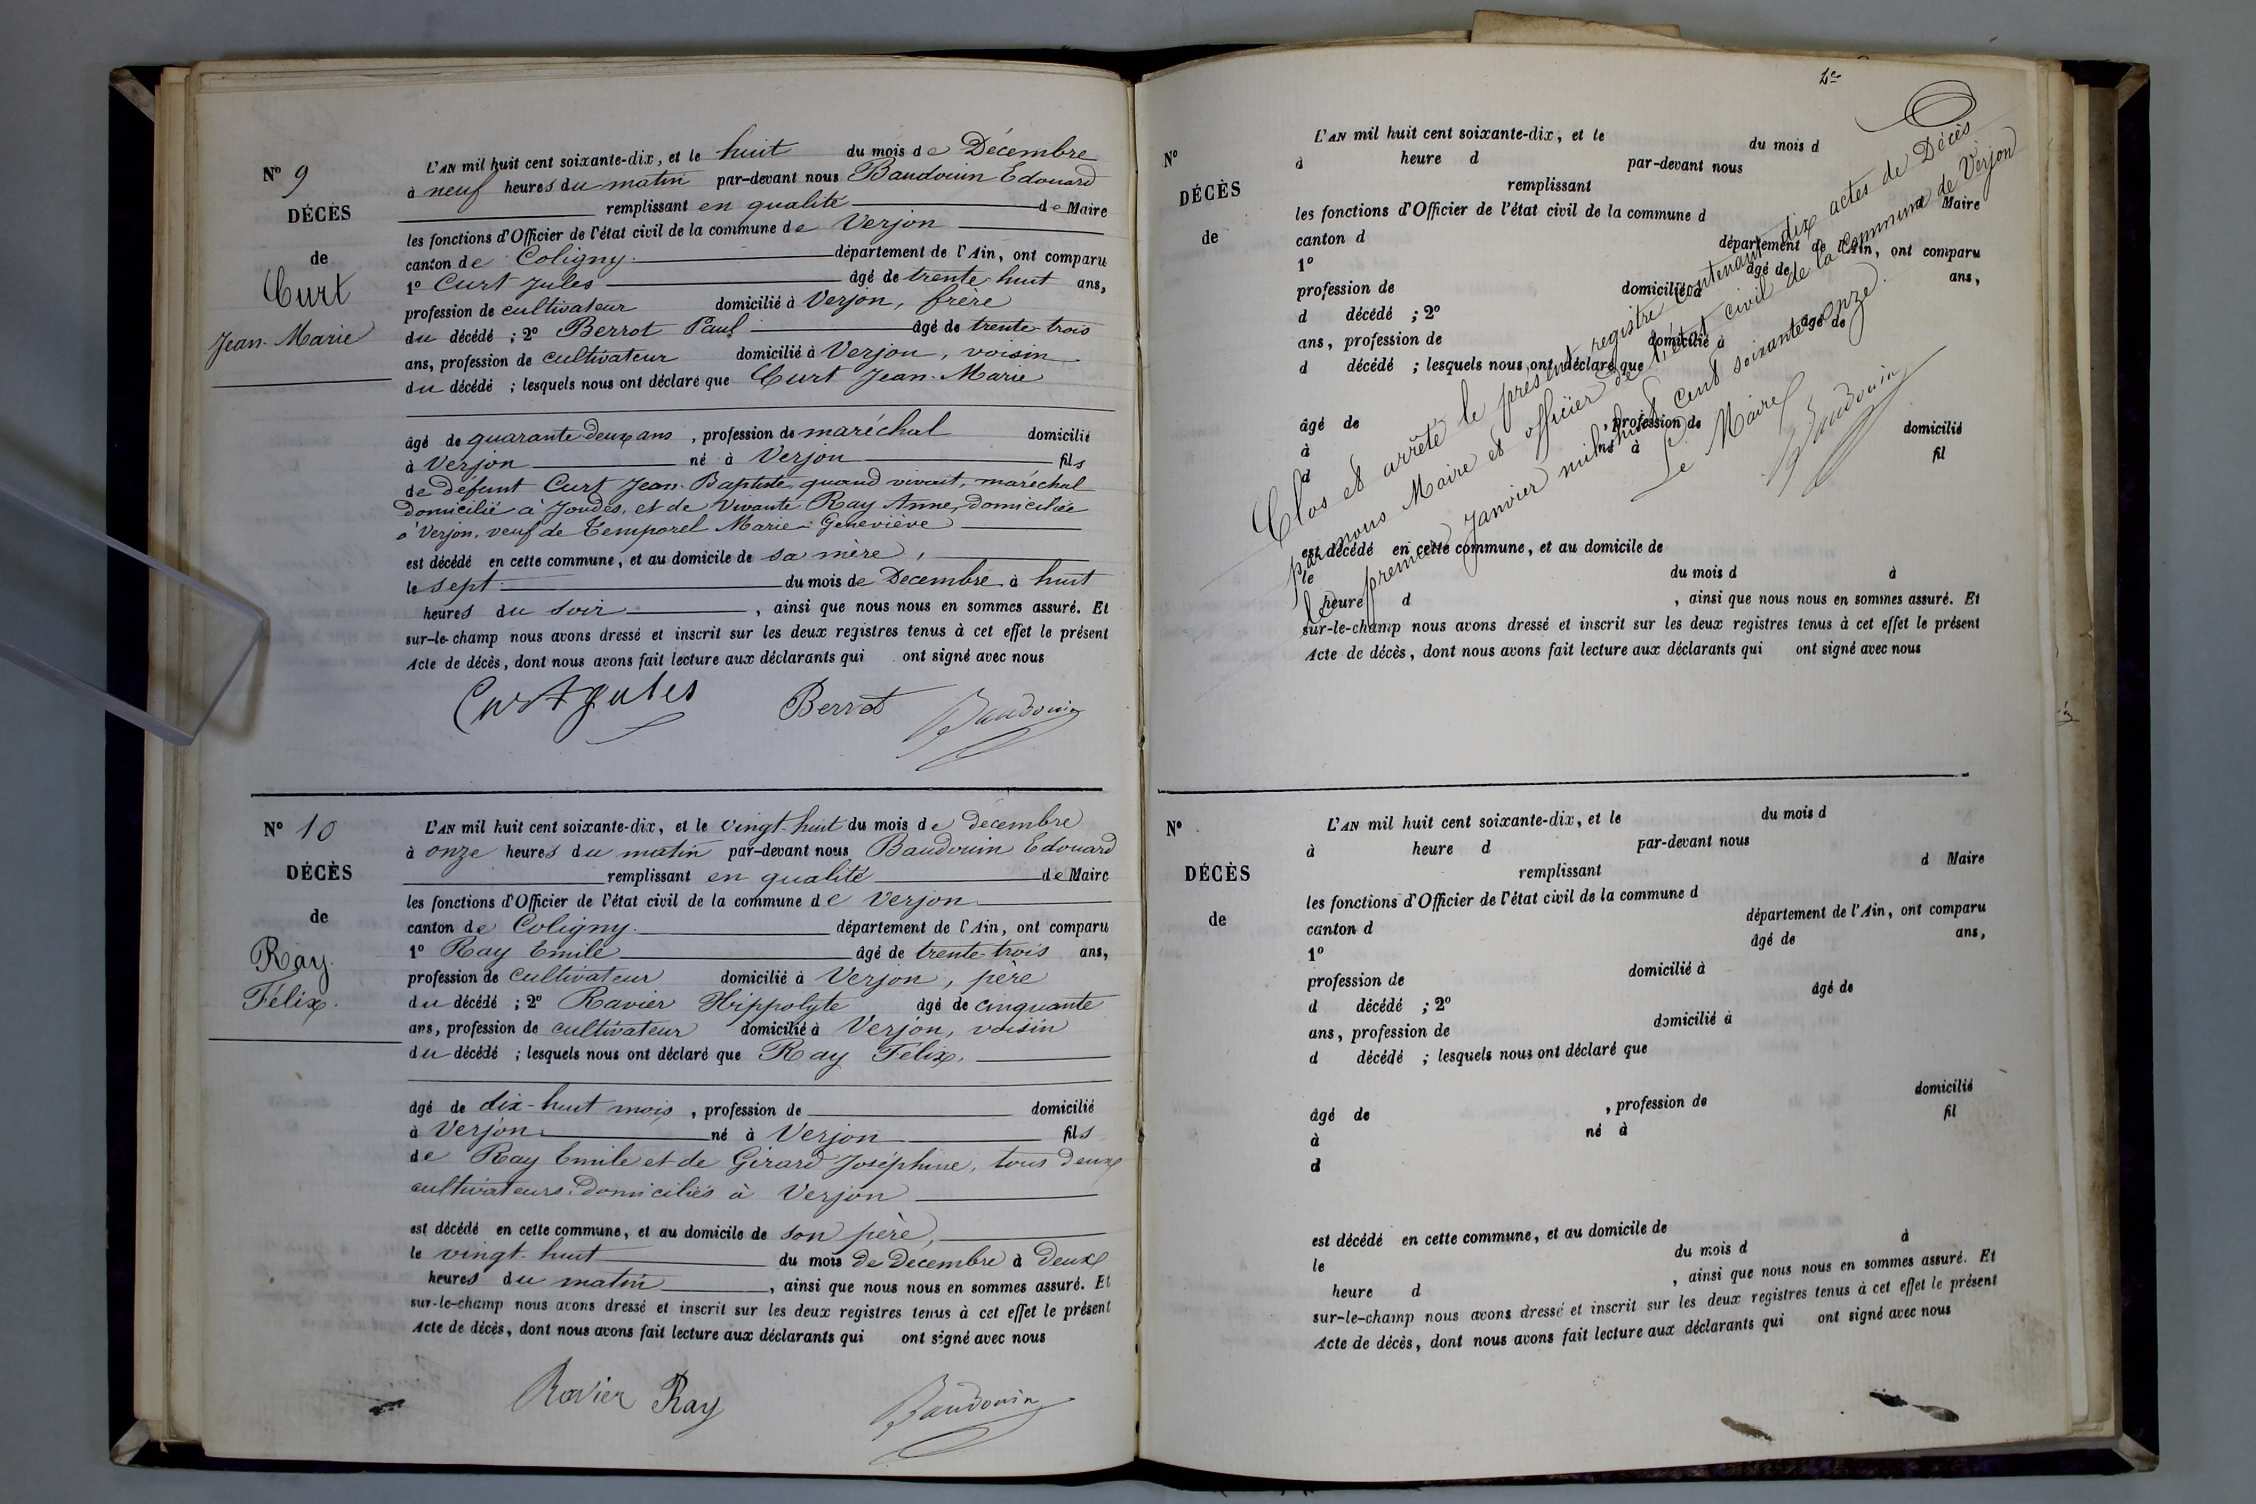 Nº 9
DÉCÈS
de
Curt
Jean-Marie
L'AN mil huit cent soixante-dix, et le huit du mois de Décembre
à neuf heures du matin par-devant nous Baudouin Edouard
remplissant en qualité de Maire
les fonctions d'Officier de l'état civil de la commune de Verjon
canton de Coligny département de l'Ain, ont comparu
1º Curt Jules âgé de trente-huit ans,
profession de cultivateur domicilié à Verjon, frère
du décédé ; 2º Berrot Paul âgé de trente-trois
ans, profession de cultivateur domicilié à Verjon, voisin
du décédé ; lesquels nous ont déclaré que Curt Jean-Marie
âgé de quarante-deux ans, profession de maréchal domicilié
à Verjon né à Verjon fils
de défunt Curt Jean-Baptiste quand vivait, maréchal
domicilié à Joudes, et de Vivante Ray Anne, domiciliée
à Verjon, veuf de Temporel Marie-Geneviève
est décédé en cette commune, et au domicile de sa mère,
le sept du mois de Décembre à huit
heures du soir, ainsi que nous nous en sommes assuré. Et
sur-le-champ nous avons dressé et inscrit sur les deux registres tenus à cet effet le présent
Acte de décès, dont nous avons fait lecture aux déclarants qui ont signé avec nous
Curt Jules Berrot Baudouin
Nº 10
DÉCÈS
de
Ray
Félix.
L'AN mil huit cent soixante-dix, et le vingt-huit du mois de décembre
à onze heures du matin par-devant nous Baudouin Edouard
remplissant en qualité de Maire
les fonctions d'Officier de l'état civil de la commune de Verjon
canton de Coligny département de l'Ain, ont comparu
1º Ray Emile âgé de trente-trois ans,
profession de cultivateur domicilié à Verjon, père
du décédé ; 2º Ravier Hippolyte âgé de cinquante
ans, profession de cultivateur domicilié à Verjon, voisin
du décédé ; lesquels nous ont déclaré que Ray Félix,
âgé de dix-huit mois, profession de domicilié
à Verjon né à Verjon fils
de Ray Emile et de Girard Joséphine, tous deux
cultivateurs, domiciliés à Verjon
est décédé en cette commune, et au domicile de son père,
le vingt-huit du mois de Décembre à deux
heures du matin, ainsi que nous nous en sommes assuré. Et
sur-le-champ nous avons dressé et inscrit sur les deux registres tenus à cet effet le présent
Acte de décès, dont nous avons fait lecture aux déclarants qui ont signé avec nous
Ravier Ray Baudouin
Nº
DÉCÈS
de
L'AN mil huit cent soixante-dix, et le du mois d
à heure d par-devant nous
remplissant d Maire
les fonctions d'Officier de l'état civil de la commune d
canton d département de l'Ain, ont comparu
1º âgé de ans,
profession de domicilié à
d décédé ; 2º âgé de
ans, profession de domicilié à
d décédé ; lesquels nous ont déclaré que
âgé de , profession de domicilié
à né à fil
d
est décédé en cette commune, et au domicile de
le du mois d à
heure d , ainsi que nous nous en sommes assuré. Et
sur-le-champ nous avons dressé et inscrit sur les deux registres tenus à cet effet le présent
Acte de décès, dont nous avons fait lecture aux déclarants qui ont signé avec nous
Clos et arrêté le présent registre contenant dix actes de Décès
par nous Maire et officier de l'état civil de la commune de Verjon
le premier Janvier mil huit cent soixante-onze.
Le Maire
Baudouin
Nº
DÉCÈS
de
L'AN mil huit cent soixante-dix, et le du mois d
à heure d par-devant nous
remplissant d Maire
les fonctions d'Officier de l'état civil de la commune d
canton d département de l'Ain, ont comparu
1º âgé de ans,
profession de domicilié à
d décédé ; 2º âgé de
ans, profession de domicilié à
d décédé ; lesquels nous ont déclaré que
âgé de , profession de domicilié
à né à fil
d
est décédé en cette commune, et au domicile de
le du mois d à
heure d , ainsi que nous nous en sommes assuré. Et
sur-le-champ nous avons dressé et inscrit sur les deux registres tenus à cet effet le présent
Acte de décès, dont nous avons fait lecture aux déclarants qui ont signé avec nous